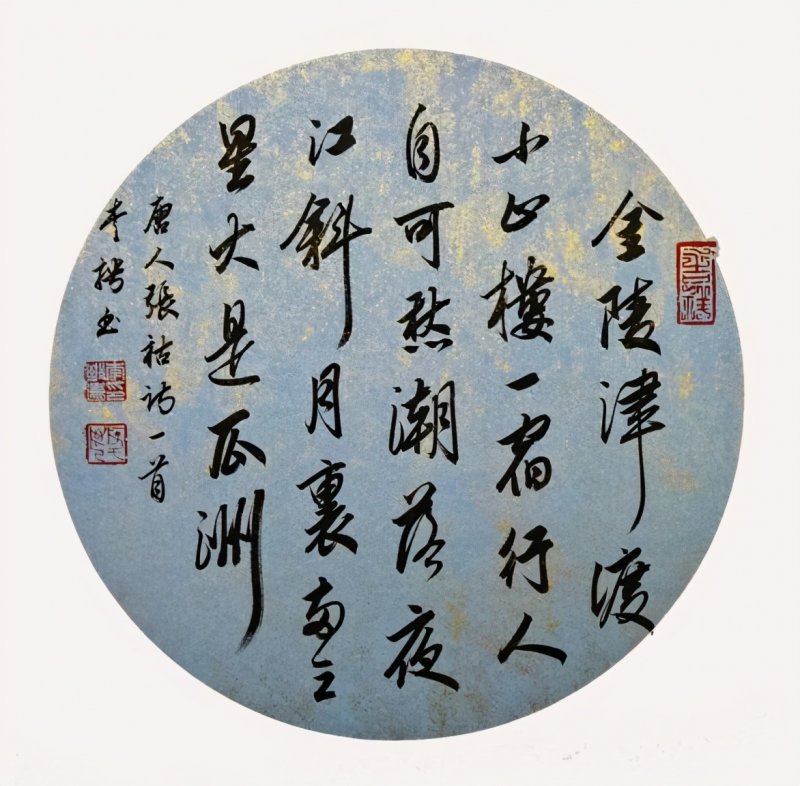 金陵津渡
小山樓一宿行人
自可愁潮落夜
江斜月裏兩三
星火是瓜洲
唐人張祜詩一首
书